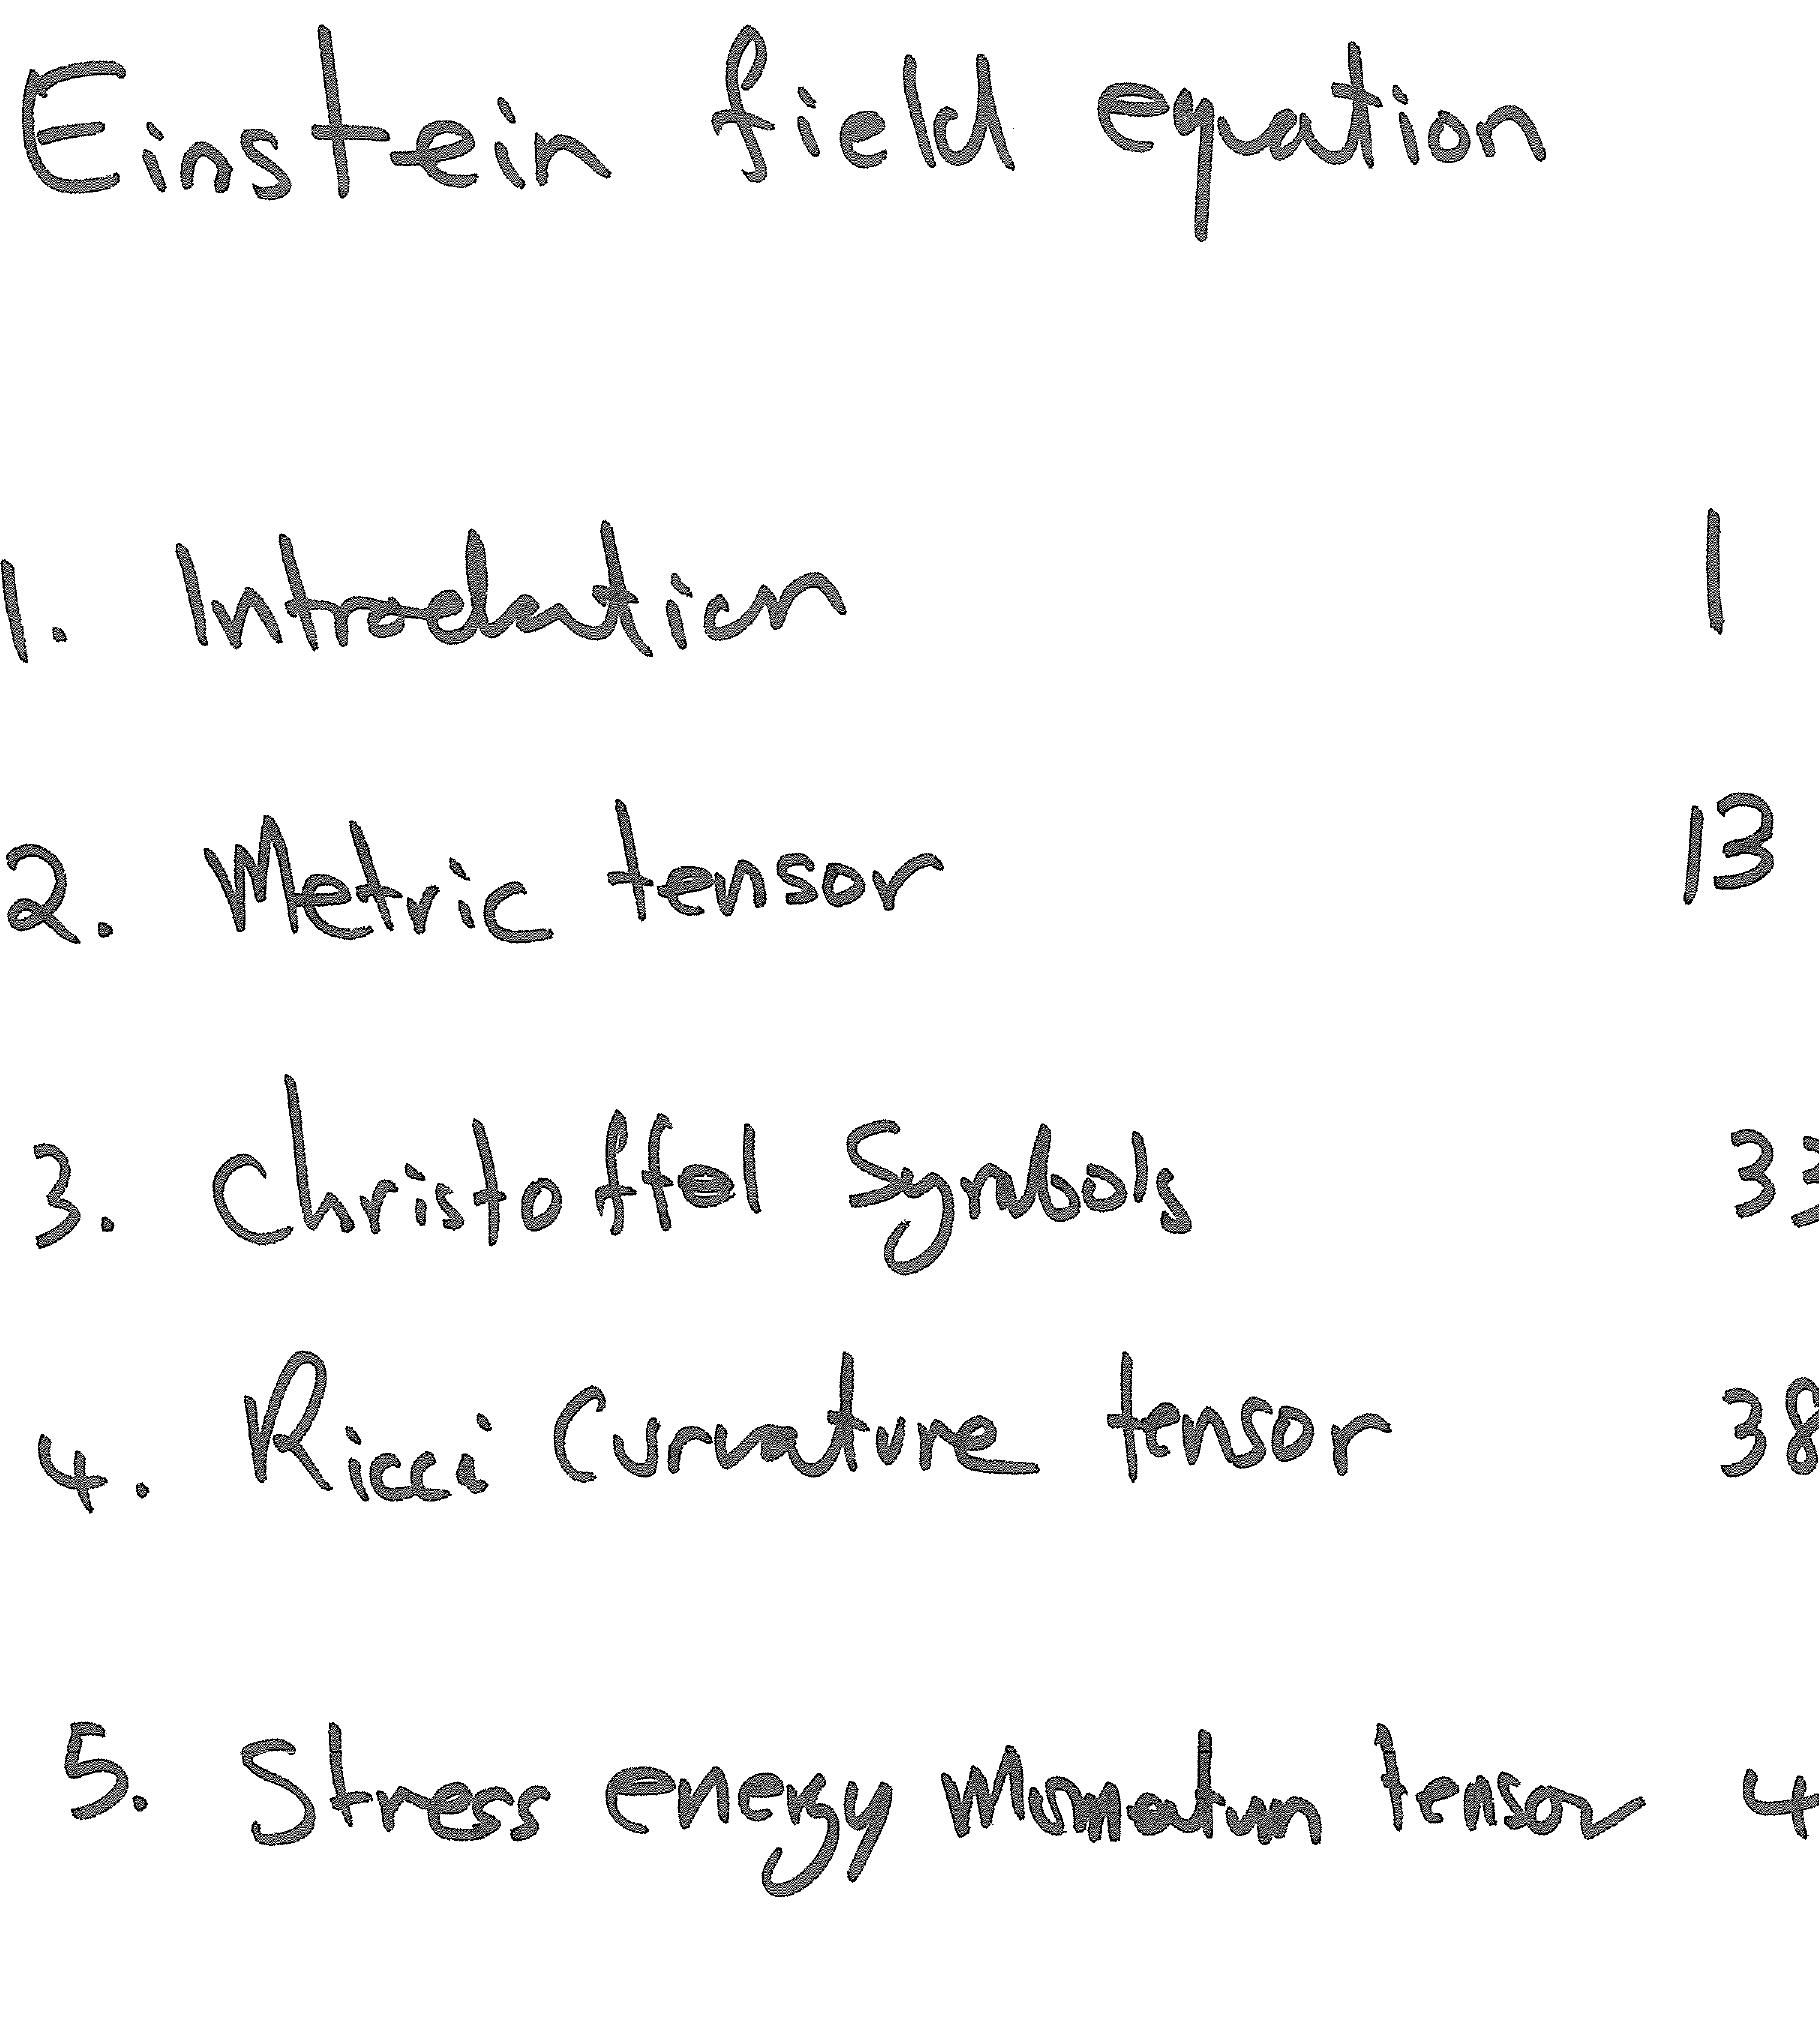 Einstein field equation
1. Introduction 1
2. Metric tensor 13
3. Christoffel Symbols 33
4. Ricci Curvature tensor 38
5. Stress energy Momentum tensor 4